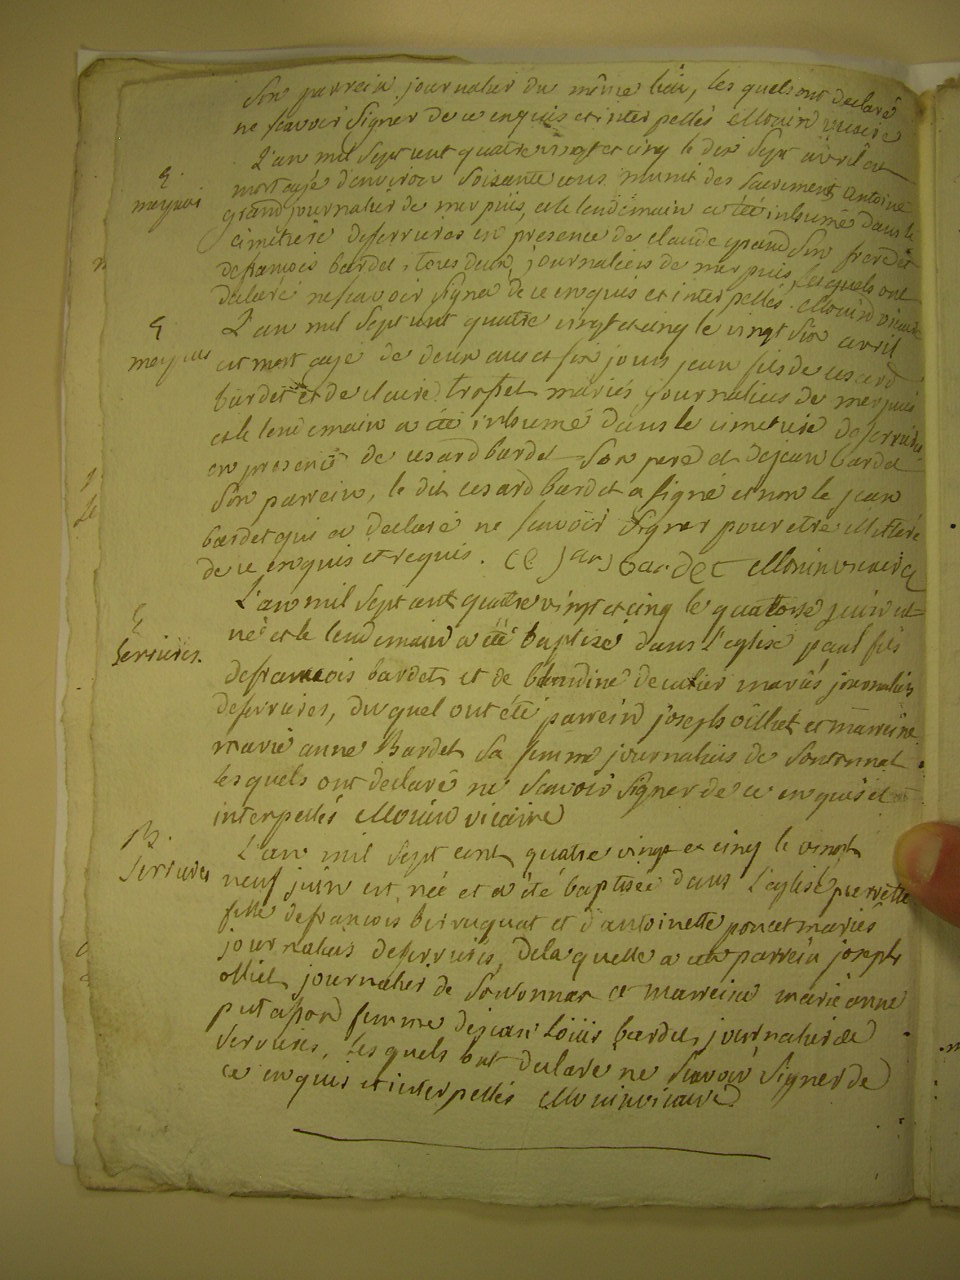 Son parrein journalier du même lieu, les quels ont declaré
ne scavoir signer de ce enquis et interpellés Monin vicaire
L'an mil sept cent quatre vingt et cinq le dix sept avril est
S.
merpuis
mort agé d'environ soixante ans munit des sacrements antoine
grand journalier de merpuis, et le lendemain a été inhumé dans le
cimetiere deserrieres en presence de claude grand son frere et
defrancois bardet, tous deux journaliers de merpuis, lesquels ont
declaré ne scavoir signer de ce enquis et interpellés. Monin vicaire
S
merpuis
L'an mil sept cent quatre vingt et cinq le vingt six avril
est mort agé de deux ans et six jours jean fils de cesard
bardet et de claire trosset mariés journaliers de merpuis
et le lendemain a été inhumé dans le cimetiere deserrieres
en presence de cesard bardet son pere et dejean bardet
son parrein, le dit cesard bardet a signé et non le jean
bardet qui a declaré ne scavoir signer pour etre illitteré
de ce enquis et requis. Monin vicaire
L'an mil sept cent quatre vingt et cinq le quatorse juin est
B
Serrieres.
né et le lendemain a été baptisé dans l'eglise paul fils
defrancois bardet et de blandine mariés journaliers
deserrieres, duquel ont été parrein joseph olliet et marreine
marie anne Bardet sa femme journaliers de Sonnonnas
lesquels ont declaré ne scavoir signer de ce enquis et
interpellés Monin vicaire
B.
Serrieres
L'an mil sept cent quatre vingt et cinq le vingt
neuf juin est née et a été baptisée dans l'eglise pierrette
fille defrancois berruquat et d'antoinette poncet mariés
journaliers deserrieres, de la quelle a été parrein joseph
olliet journalier de Sonnonnas et marreine marie anne
femme dejean Loüis bardet, journalier de
Serrieres, lesquels ont declaré ne scavoir signer de
ce enquis et interpellés Monin vicaire